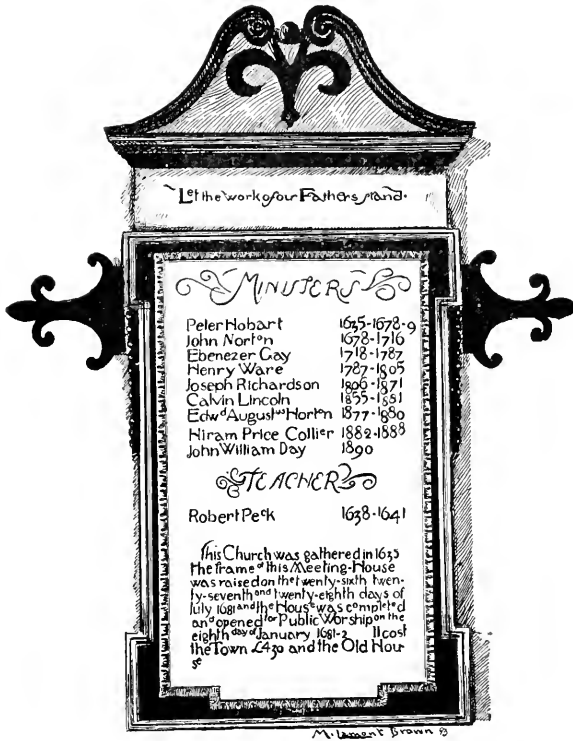 Let the work of our Fathers stand.
MINISTERS
Peter Hobart 1635-1678-9
John Norton 1678-1716
Ebenezer Gay 1718-1787
Henry Ware 1787-1805
Joseph Richardson 1806-1871
Calvin Lincoln 1855-1881
Edwd Augustus Horton 1877-1880
Hiram Price Collier 1882-1888
John William Day 1890
TEACHER
Robert Peck 1638-1641
This Church was gathered in 1635
The frame of this Meeting-House
was raised on the twenty-sixth twen-
ty-seventh and twenty-eighth days of
July 1681 and the House was completed
and opened for Public Worship on the
eighth day of January 1681-2 It cost
the Town £430 and the Old Hou-
se
M. Lamont Brown 93